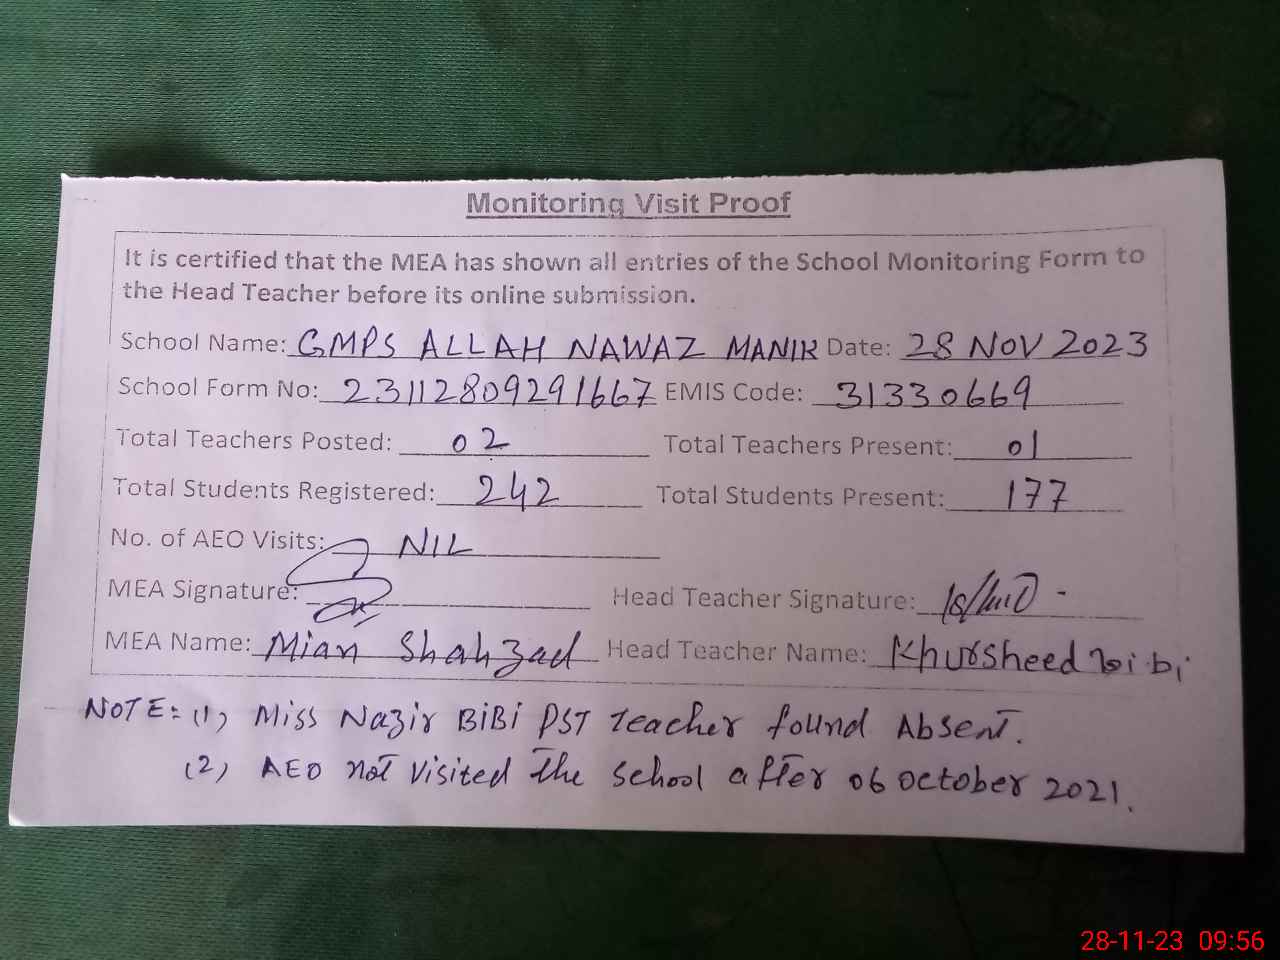 Monitoring Visit Proof
It is certified that the MEA has shown all entries of the School Monitoring Form to
the Head Teacher before its online submission.
School Name: GMPS ALLAH NAWAZ MANIK Date: 28 NOV 2023
School Form No: 23112809291667 EMIS Code: 31330669
Total Teachers Posted: 02 Total Teachers Present: 01
Total Students Registered: 242 Total Students Present: 177
No. of AEO Visits: NIL
MEA Signature: Head Teacher Signature:
MEA Name: Mian Shahzad Head Teacher Name: Khursheed bibi
NOTE: (1) Miss Nazir BiBi PST Teacher found Absent.
(2) AEO not visited the school after 06 october 2021.
28-11-23 09:56